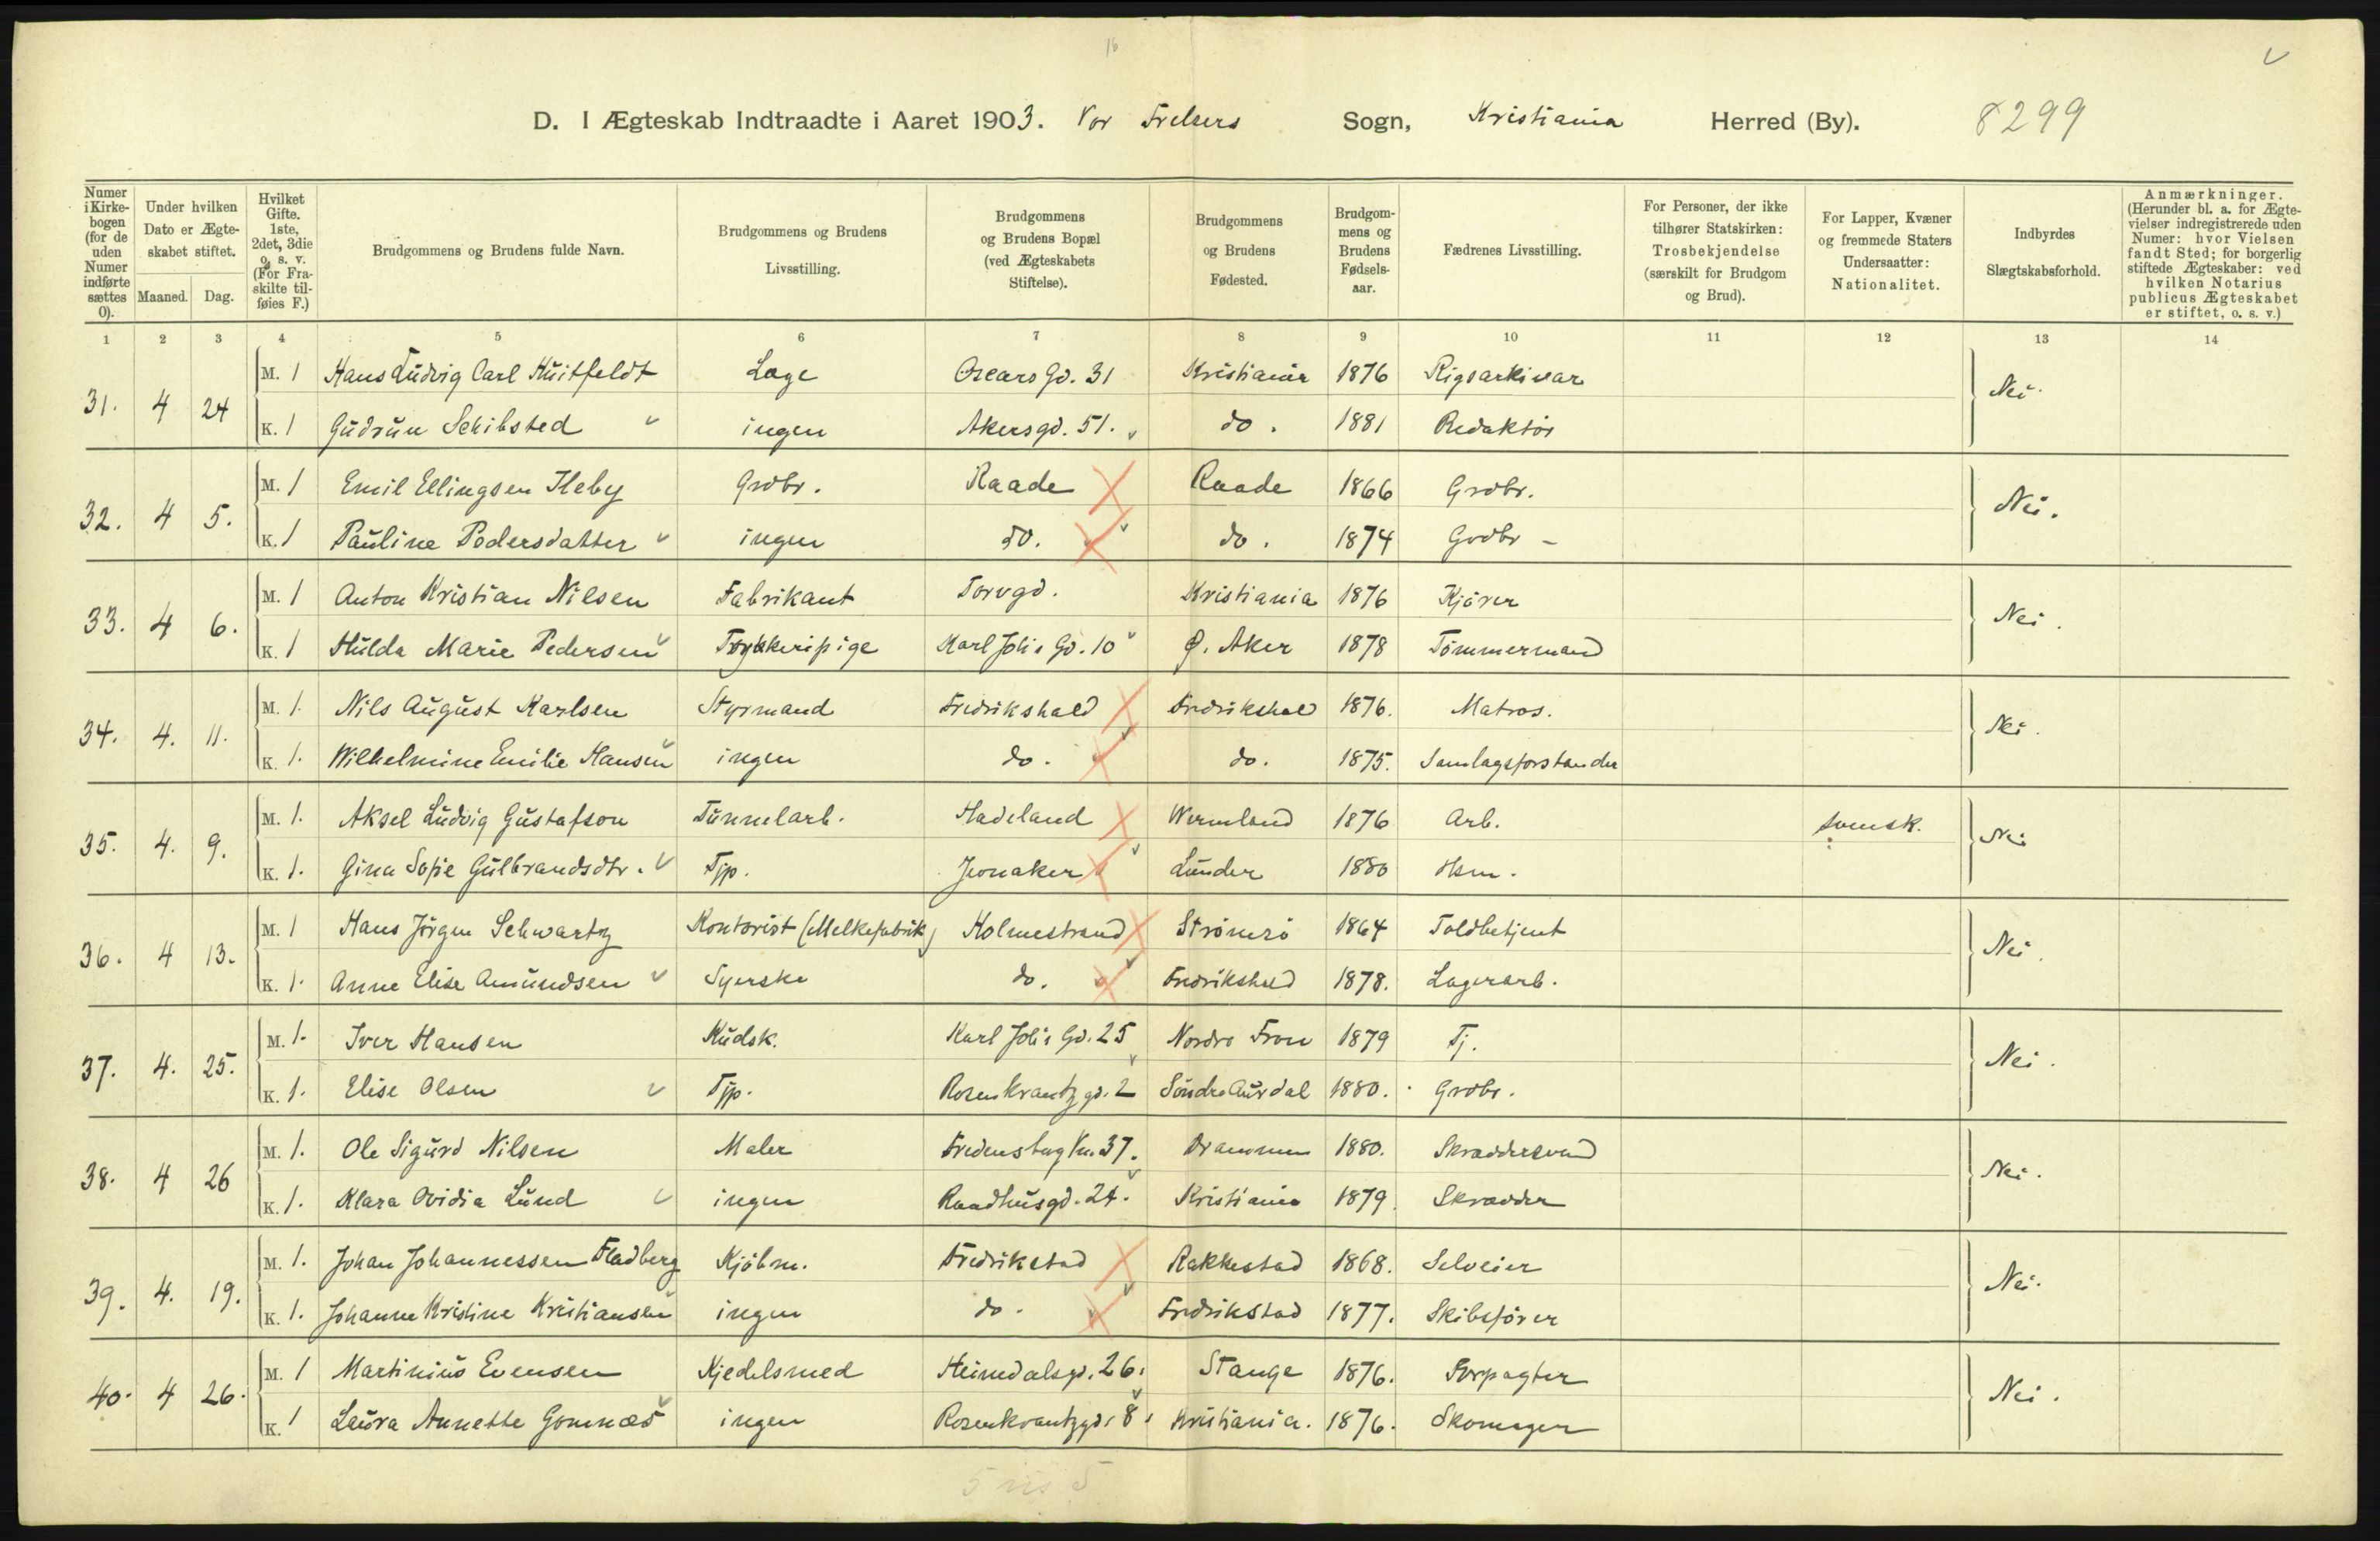 16
D. I Ægteskab Indtraadte i Aaret 1903. Vor Frelsers Sogn, Kristiania Herred (By). 8299
Numer i Kirkebogen (for de uden Numer indførte sættes 0).
Under hvilken Dato er Ægteskabet stiftet.
Maaned. Dag.
Hvilket Gifte. 1ste, 2det, 3die o. s. v. (For Fraskilte tilføies F.)
Brudgommens og Brudens fulde Navn.
Brudgommens og Brudens Livsstilling.
Brudgommens og Brudens Bopæl (ved Ægteskabets Stiftelse).
Brudgommens og Brudens Fødested.
Brudgommens og Brudens Fødselsaar.
Fædrenes Livsstilling.
For Personer, der ikke tilhører Statskirken: Trosbekjendelse (særskilt for Brudgom og Brud).
For Lapper, Kvæner og fremmede Staters Undersaatter: Nationalitet.
Indbyrdes Slægtskabsforhold.
Anmærkninger. (Herunder bl. a. for Ægtevielser indregistrerede uden Numer: hvor Vielsen fandt Sted; for borgerlig stiftede Ægteskaber: ved hvilken Notarius publicus Ægteskabet er stiftet, o. s. v.)
1 2 3 4 5 6 7 8 9 10 11 12 13 14
31. 4 24 M. 1 Hans Ludvig Carl Huitfeldt Læge Oscars Gd. 31 Kristiania 1876 Rigsarkivar Nei
K. 1 Gudrun Schibsted ingen Akersgd. 51. do. 1881 Redaktør
32. 4 5. M. 1 Emil Ellingsen Heby Grdbr. Raade Raade 1866 Grdbr. Nei.
K. 1 Pauline Pedersdatter ingen do. do. 1874 Grdbr
33. 4 6. M. 1 Anton Kristian Nilsen Fabrikant Torvgd. Kristiania 1876 Kjører Nei.
K. 1 Hulda Marie Pedersen Trykkeripige Karl Joh's Gd. 10 Ø. Aker 1878 Tømmermand
34. 4. 11. M. 1. Nils August Karlsen Styrmand Fredrikshald Fredrikshald 1876. Matros. Nei.
K. 1. Wilhelmine Emilie Hansen ingen do. do. 1875. Samlagsforstander
35. 4. 9. M. 1. Aksel Ludvig Gustafson Tunnelarb. Hadeland Wermland 1876 Arb. svensk. Nei
K. 1. Gina Sofie Gulbrandsdtr. Tjp. Jevnaker Lunder 1880 Hsm.
36. 4 13. M. 1 Hans Jørgen Schwartz Kontorist (Melkefabrik) Holmestrand Strømsø 1864 Toldbetjent Nei.
K. 1. Anne Elise Amundsen Syerske do. Fredrikshald 1878. Lagerarb.
37. 4. 25. M. 1. Iver Hansen Kudsk. Karl Joh's Gd. 25 Nordre Fron 1879 Tj. Nei.
K. 1. Elise Olsen Tjp. Rosenkrantzgd. 2 Søndre Aurdal 1880. Grdbr.
38. 4 26 M. 1. Ole Sigurd Nilsen Maler Fredensborg Vn. 37. Drammen 1880. Skræddersvend Nei.
K. 1. Klara Ovidia Lund ingen Raadhusgd. 24. Kristiania 1879 Skrædder
39. 4. 19. M. 1. Johan Johannessen Fladberg Kjøbm. Fredrikstad Rakkestad 1868. Selveier Nei.
K. 1. Johanne Kristine Kristiansen ingen do. Fredrikstad 1877. Skibsfører
40. 4 26. M. 1 Martinius Evensen Kjedelsmed Heimdalsgd. 26. Stange 1876. Forpagter Nei.
K. 1 Laura Annette Gomnæs ingen Rosenkrantzgd. 8 Kristiania. 1876. Skomager